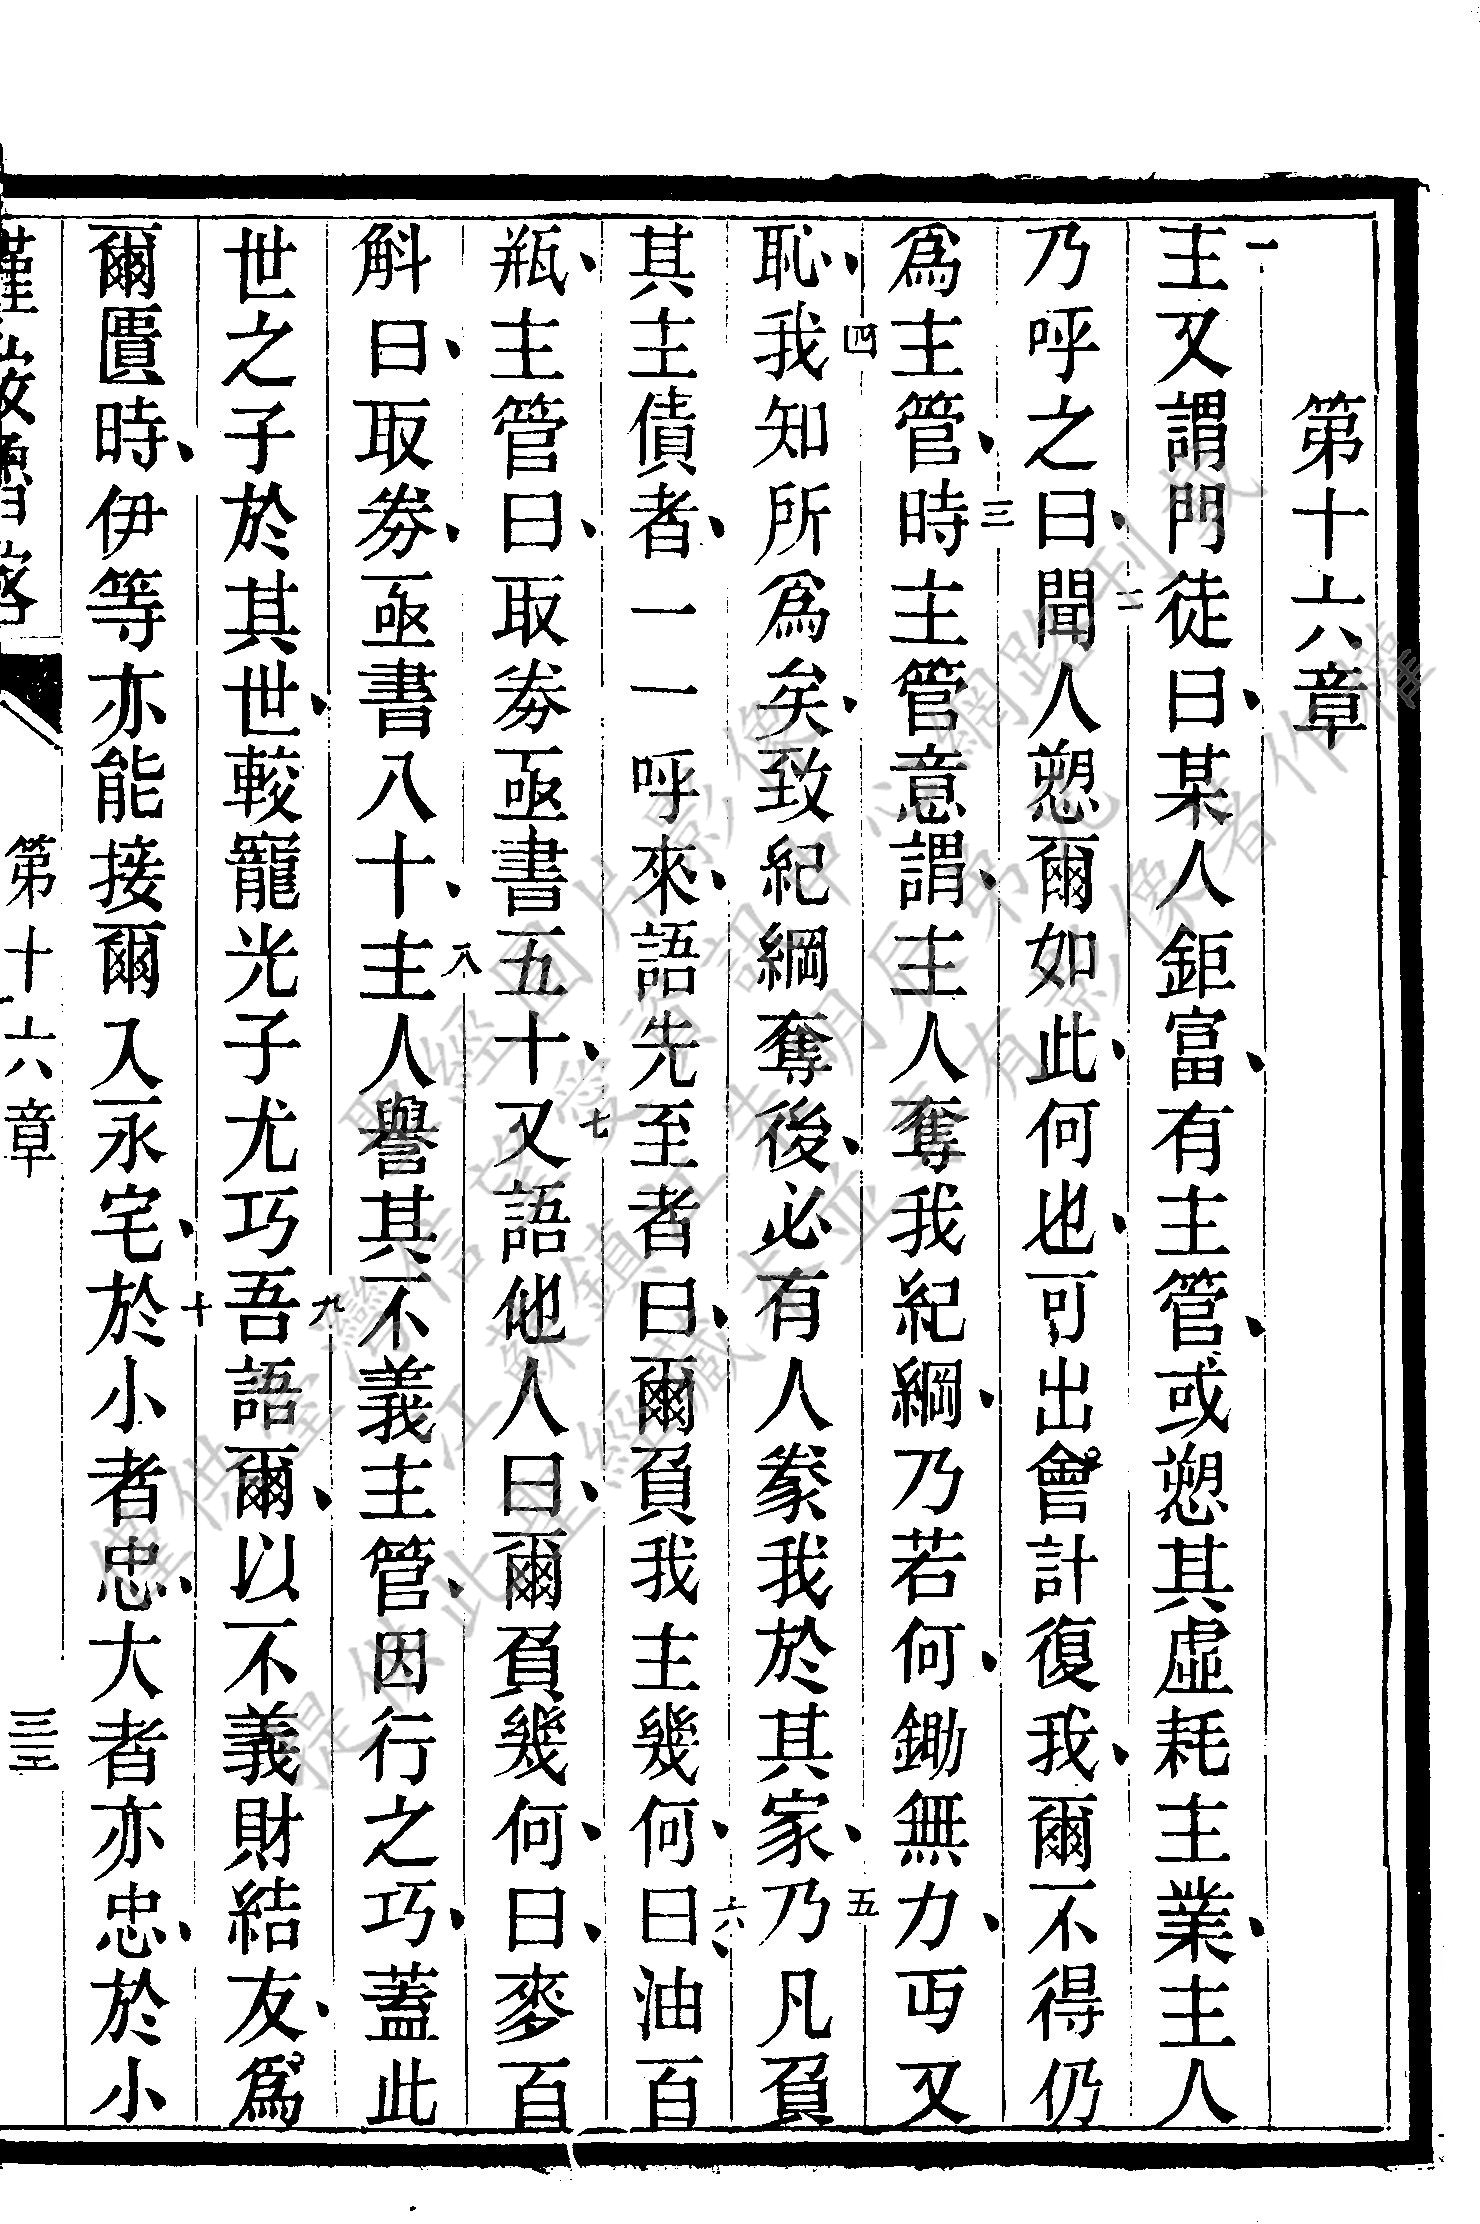 第十六章
一主又謂門徒曰、某人鉅富、有主管、或愬其虛耗主業、主人
乃呼之曰、二聞人愬爾如此、何也、可出會計復我、爾不得仍
爲主管、三時主管意謂、主人奪我紀綱、乃若何、鋤無力、丐又
恥、四我知所爲矣、致紀綱奪後、必有人豢我於其家、五乃凡負
其主債者、一一呼來、語先至者曰、爾負我主幾何、六曰、油百
瓶、主管曰、取券亟書五十、七又語他人曰、爾負幾何、曰、麥百
斛、曰、取券、亟書八十、八主人譽其不義主管、因行之巧、蓋此
世之子於其世、較寵光子尤巧、九吾語爾、以不義財結友、爲
爾匱時、伊等亦能接爾入永宅、十於小者忠、大者亦忠、於小
第十六章
三三